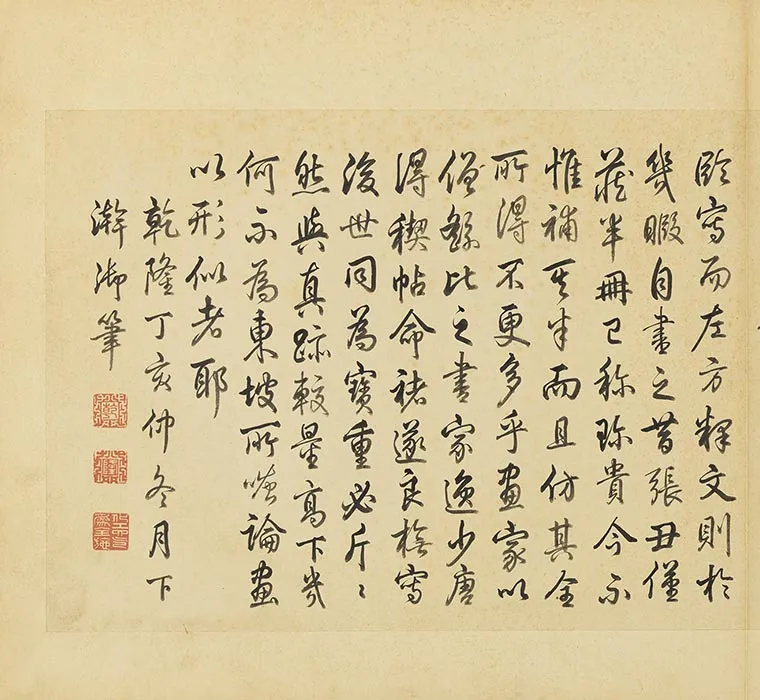 臨寫而左方釋文則於
幾暇自書之昔張丑僅
藏半冊已稱珍貴今不
惟補其半而且仿其全
所得不更多乎畫家以
僧繇比之書家逸少唐
得稧帖命褚遂良橅寫
後世同為寶重必斤〻
然與真跡較量高下幾
何不為東坡所嗤論畫
以形似者耶
乾隆丁亥仲冬月下
澣御筆